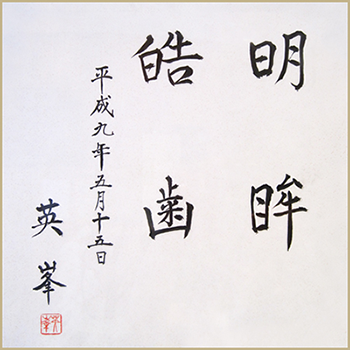 明眸
皓歯
平成九年五月十五日
英峯